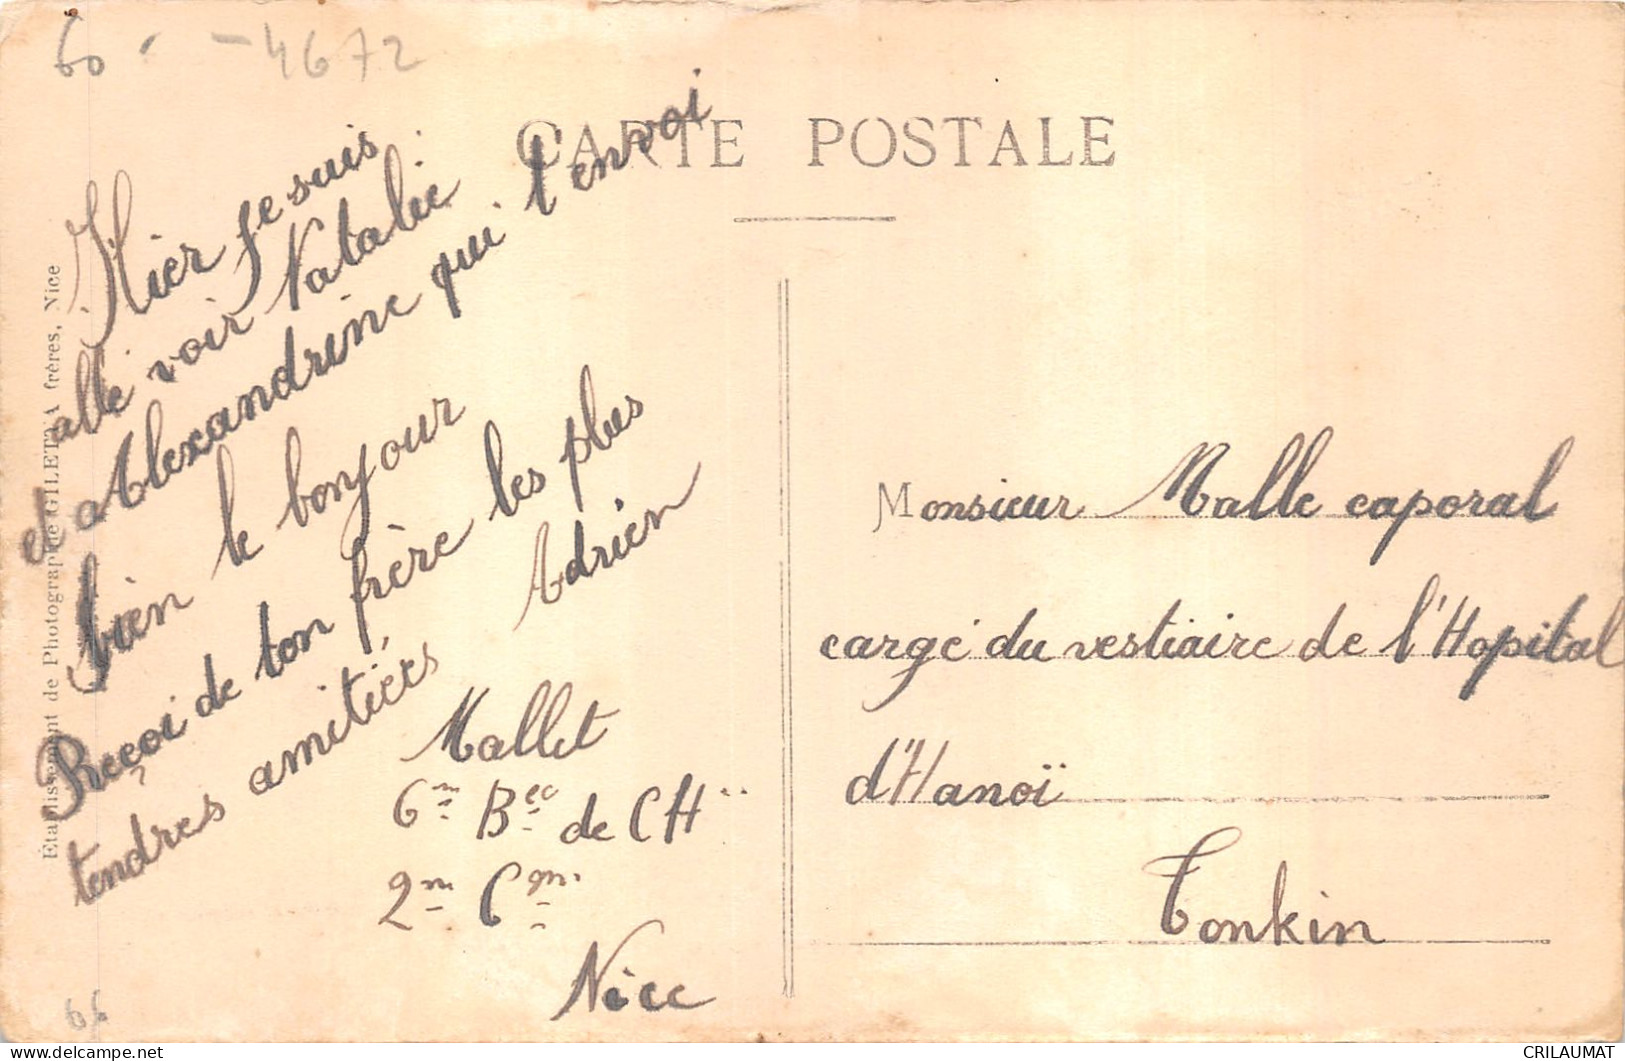 60 - -4672
CARTE POSTALE
Hier je suis
allé voir Natalie
et Alexandrine qui t'envoi
bien le bonjour
Reçoi de ton frère les plus
tendres amitiées Adrien
Mallet
6m Bon de CH
2m Cgm
Nice
Monsieur Malle caporal
cargé du vestiaire de l'Hopital
d'Hanoï
Tonkin
Etablissement de Photographie GILETTA frères, Nice
66
CRILAUMAT